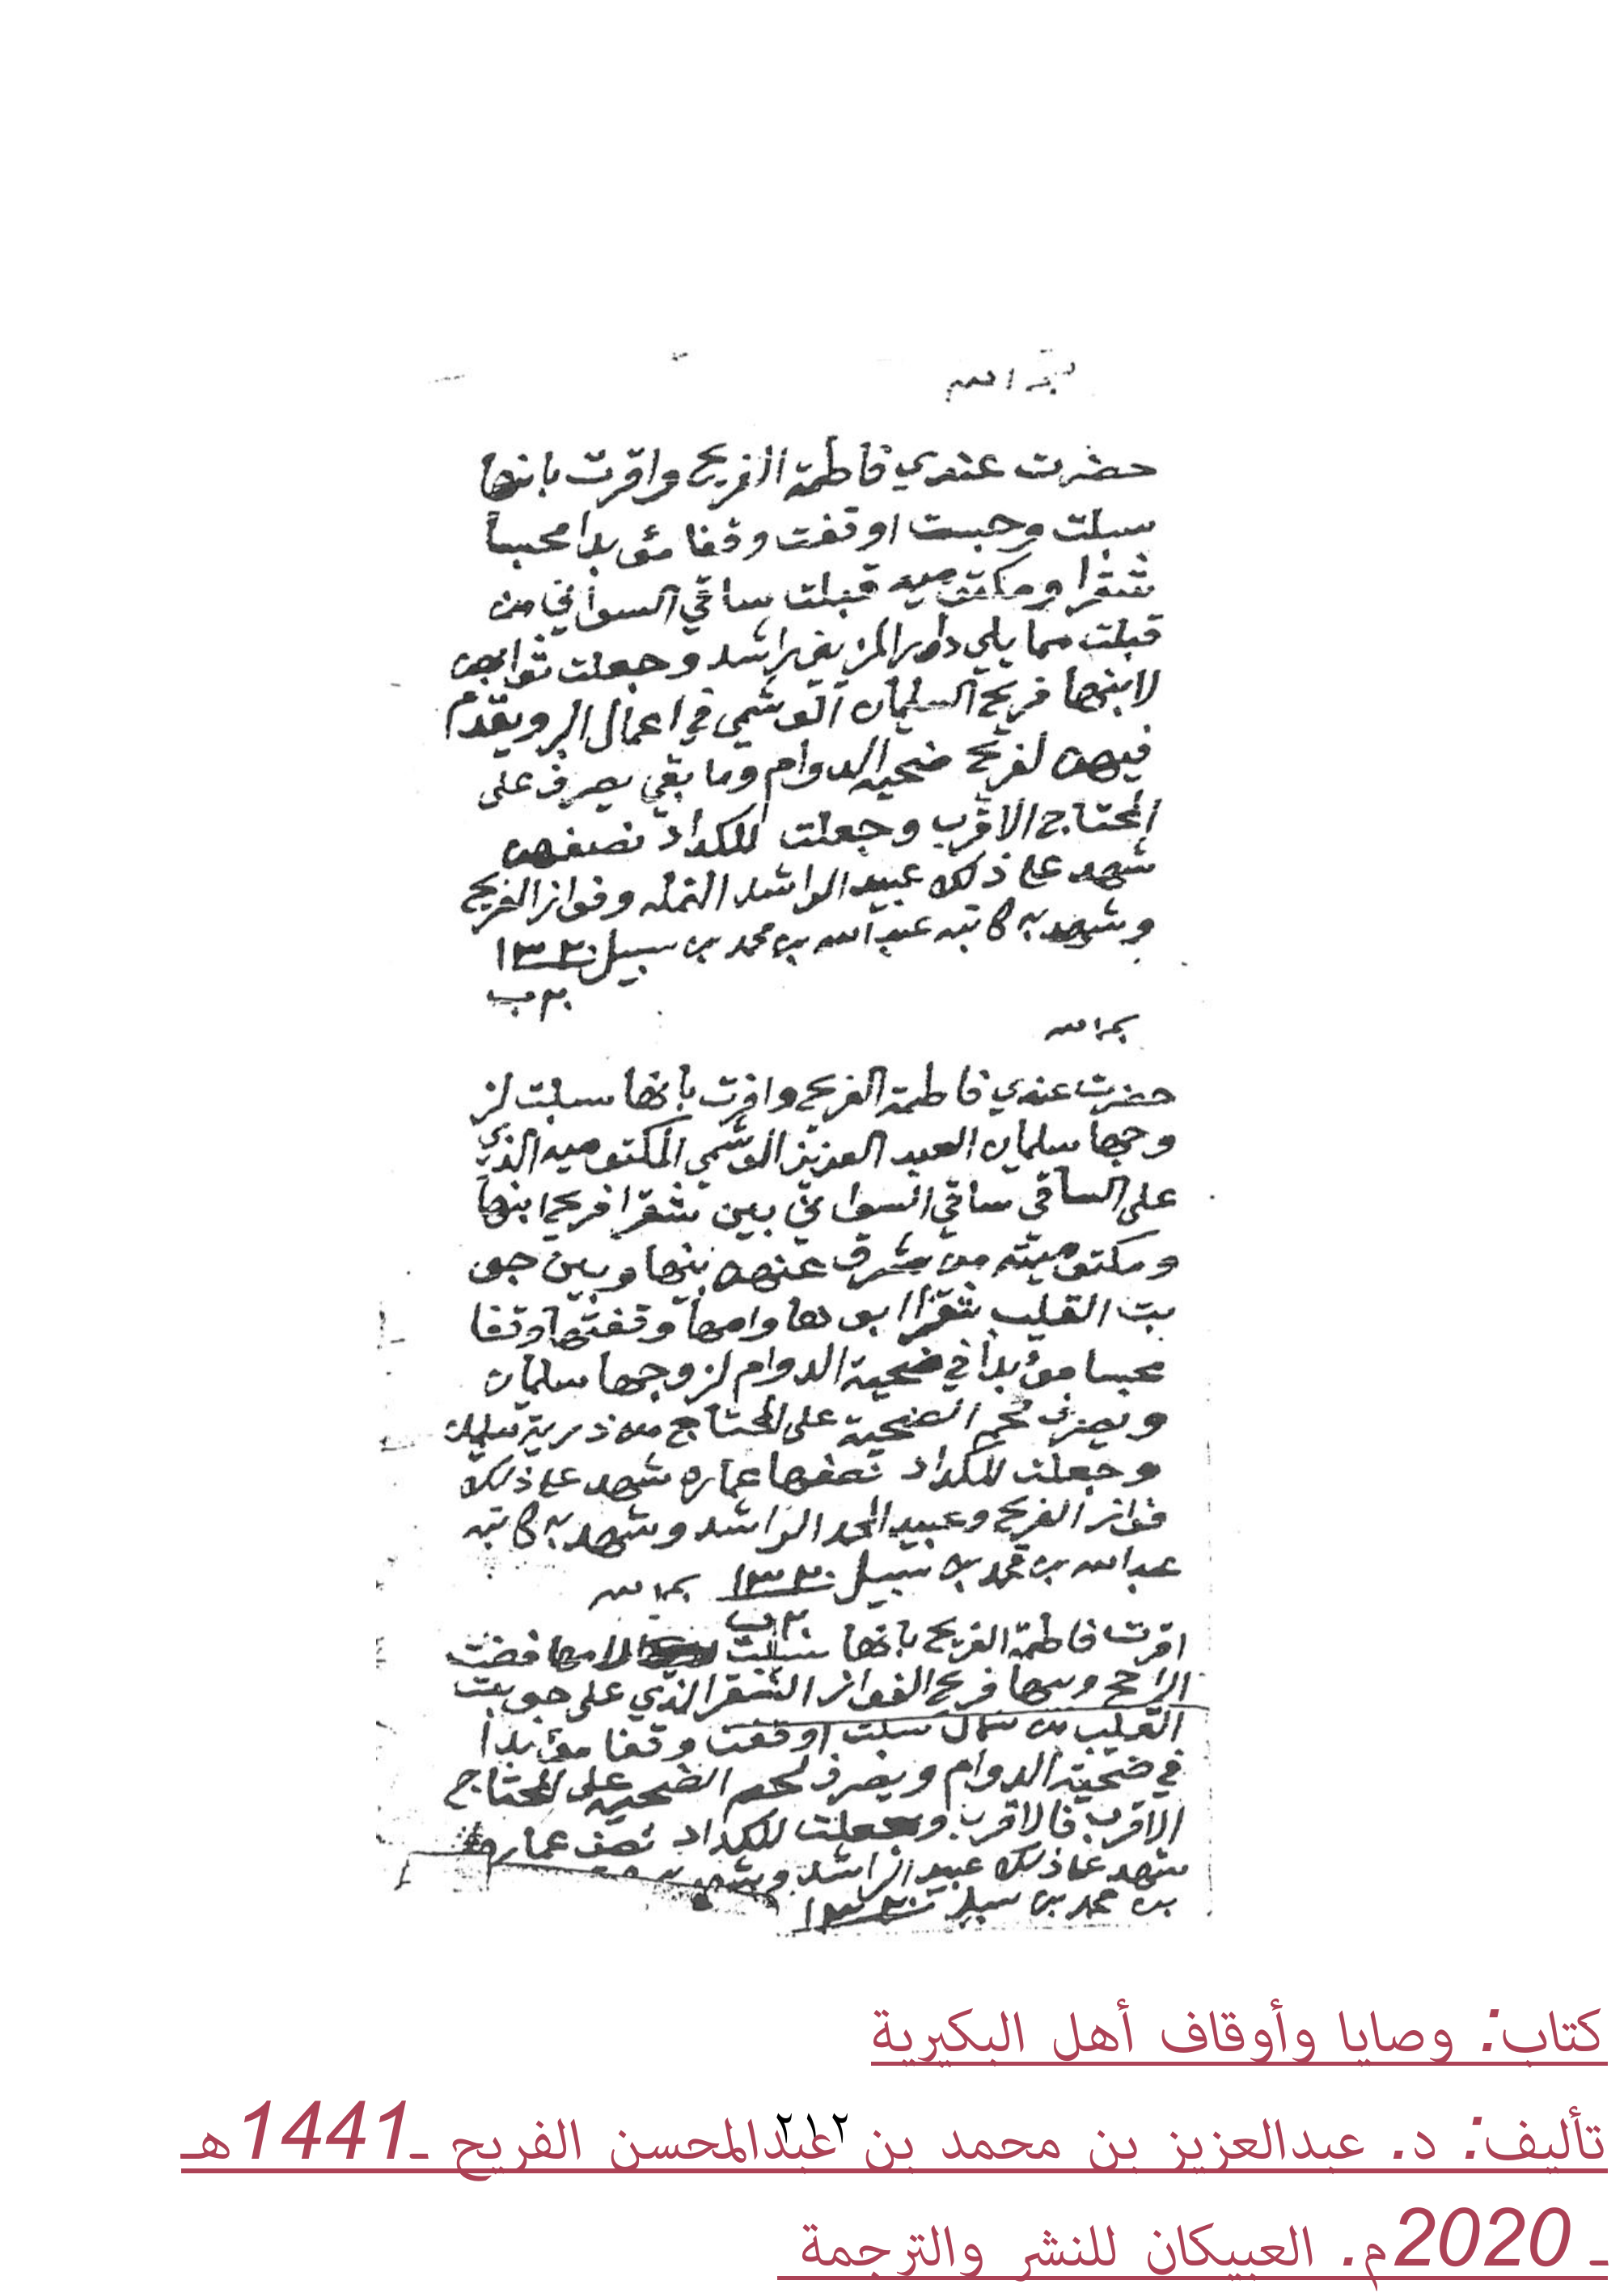 بسم الله
حضرت عندي فاطمة الفريح واقرت بانها
سبلت وحبست اوقفت وقفا مؤبدا محبسا
شقرا ومكتوميه قبلت ساقي السواني من
قبلت مما يلي دار المزيني راشد وجعلت ثوابهن
لابنها فريح السلمان الوشمي في اعمال البر ويقدم
فيهن لفريح ضحية الدوام وما بقي يصرف على
المحتاج الاقرب وجعلت للكداد نصفهن
شهد على ذلك عبيد الراشد النمله وفواز الفريح
وشهد به كاتبه عبد الله بن محمد بن سبيل ١٣٣٠
٢٠ ب
بسم الله
حضرت عندي فاطمة الفريح واقرت بانها سبلت لز
وجها سلمان العبد العزيز الوشمي المكتوميه الذي
على الساقي ساقي السواني بين شقرا فريح ابنها
ومكتوميته من شرق عنهن بينها وبين جو
بت القليب شقرا ابوها وامها وقفتها وقفا
محبسا مؤبدا في ضحية الدوام لزوجها سلمان
ويصرف لحم الضحية على المحتاج من ذرية سليمان
وجعلت للكداد نصفها عماره شهد على ذلك
فواز الفريح وعبيد المحمد الراشد وشهد به كاتبه
عبد الله بن محمد بن سبيل ١٣٣٠ بسم الله
٢٠ ب
اقرت فاطمة الفريح بانها سبلت لامها فضت
الراجح فريح الفواز الشقرا الذي على جوبت
القليب من شمال سبلت اوقفت وقفا مؤبدا
في ضحية الدوام ويصرف لحم الضحيه على المحتاج
الاقرب فالاقرب وجعلت للكداد نصف عماره
شهد على ذلك عبيد الراشد وشهد
بن محمد بن سبيل ١٣٣٠
كتاب: وصايا وأوقاف أهل البكيرية
تأليف: د. عبدالعزيز بن محمد بن عبدالمحسن الفريح ـ1441هـ
٢١٢
ـ 2020م. العبيكان للنشر والترجمة